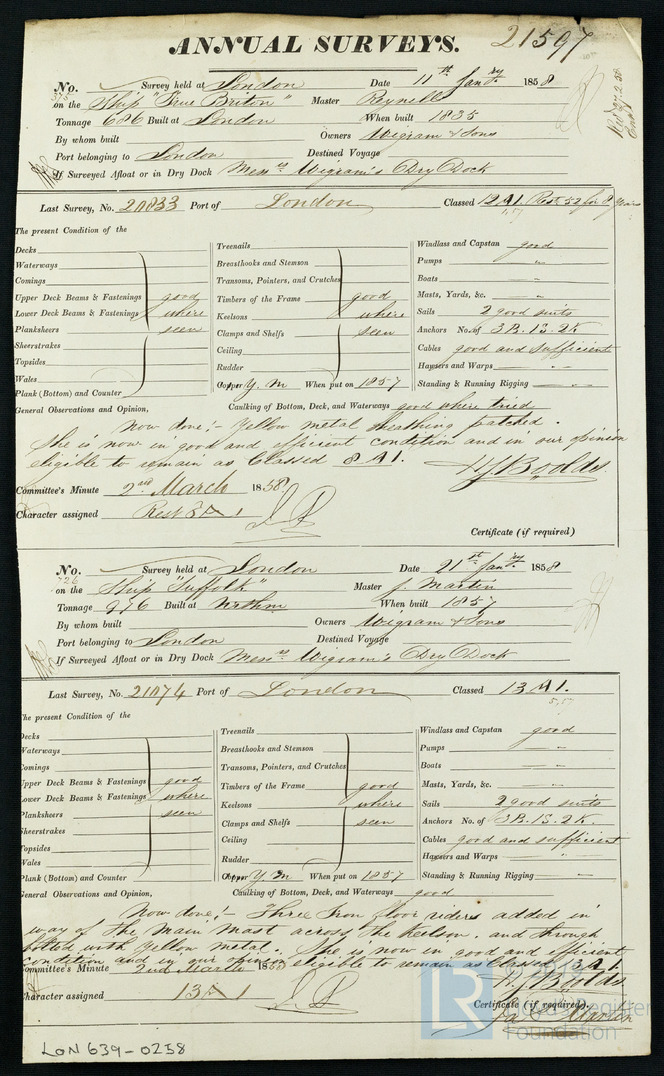 ANNUAL SURVEYS. 21597
No. Survey held at London Date 11th Jany. 1858
on the Ship "True Briton" Master Reynell
Tonnage 686 Built at London When built 1835
By whom built Owners Wigram & Sons
Port belonging to London Destined Voyage
If Surveyed Afloat or in Dry Dock Messrs Wigram's Dry Dock
Last Survey, No. 20833 Port of London Classed 12 A1. Rest. 52 for 8 years
The present Condition of the
Decks
Waterways
Comings
Upper Deck Beams & Fastenings good
Lower Deck Beams & Fastenings where
Planksheers seen
Sheerstrakes
Topsides
Wales
Plank (Bottom) and Counter
Treenails
Breasthooks and Stemson
Transoms, Pointers, and Crutches
Timbers of the Frame good
Keelsons where
Clamps and Shelfs seen
Ceiling
Rudder
Copper Y. M When put on 1857
Windlass and Capstan good
Pumps "
Boats "
Masts, Yards, &c. "
Sails 2 good suits
Anchors No. of 3B. 1S. 2K
Cables good and sufficient
Hawsers and Warps "
Standing & Running Rigging "
General Observations and Opinion, Caulking of Bottom, Deck, and Waterways good where tried
Now done:- Yellow metal sheathing patched.
She is now in good and efficient condition and in our opinion
eligible to remain as Classed 8 A1.
Committee's Minute 2nd March 1858
Character assigned Rest 8 A 1
Certificate (if required)
No. Survey held at London Date 21st Jany. 1858
726
on the Ship "Suffolk" Master J. Martin
Tonnage 976 Built at Nrthm When built 1857
By whom built Owners Wigram & Sons
Port belonging to London Destined Voyage
If Surveyed Afloat or in Dry Dock Messrs Wigram's Dry Dock
Last Survey, No. 21074 Port of London Classed 13 A1.
The present Condition of the
Decks
Waterways
Comings
Upper Deck Beams & Fastenings good
Lower Deck Beams & Fastenings where
Planksheers seen
Sheerstrakes
Topsides
Wales
Plank (Bottom) and Counter
Treenails
Breasthooks and Stemson
Transoms, Pointers, and Crutches
Timbers of the Frame good
Keelsons where
Clamps and Shelfs seen
Ceiling
Rudder
Copper Y. M When put on 1857
Windlass and Capstan good
Pumps "
Boats "
Masts, Yards, &c. "
Sails 2 good suits
Anchors No. of 3B. 1S. 2K.
Cables good and sufficient
Hawsers and Warps "
Standing & Running Rigging "
General Observations and Opinion, Caulking of Bottom, Deck, and Waterways good
Now done:- Three Iron floor riders added in
way of the main mast across the Keelson, and through
bolted with Yellow metal. She is now in good and efficient
condition and in our opinion eligible to remain as Classed 13 A1
Committee's Minute 2nd March 1858
Character assigned 13 A 1
Certificate (if required)
LR
Lloyd's Register
Foundation
LON 639-0258